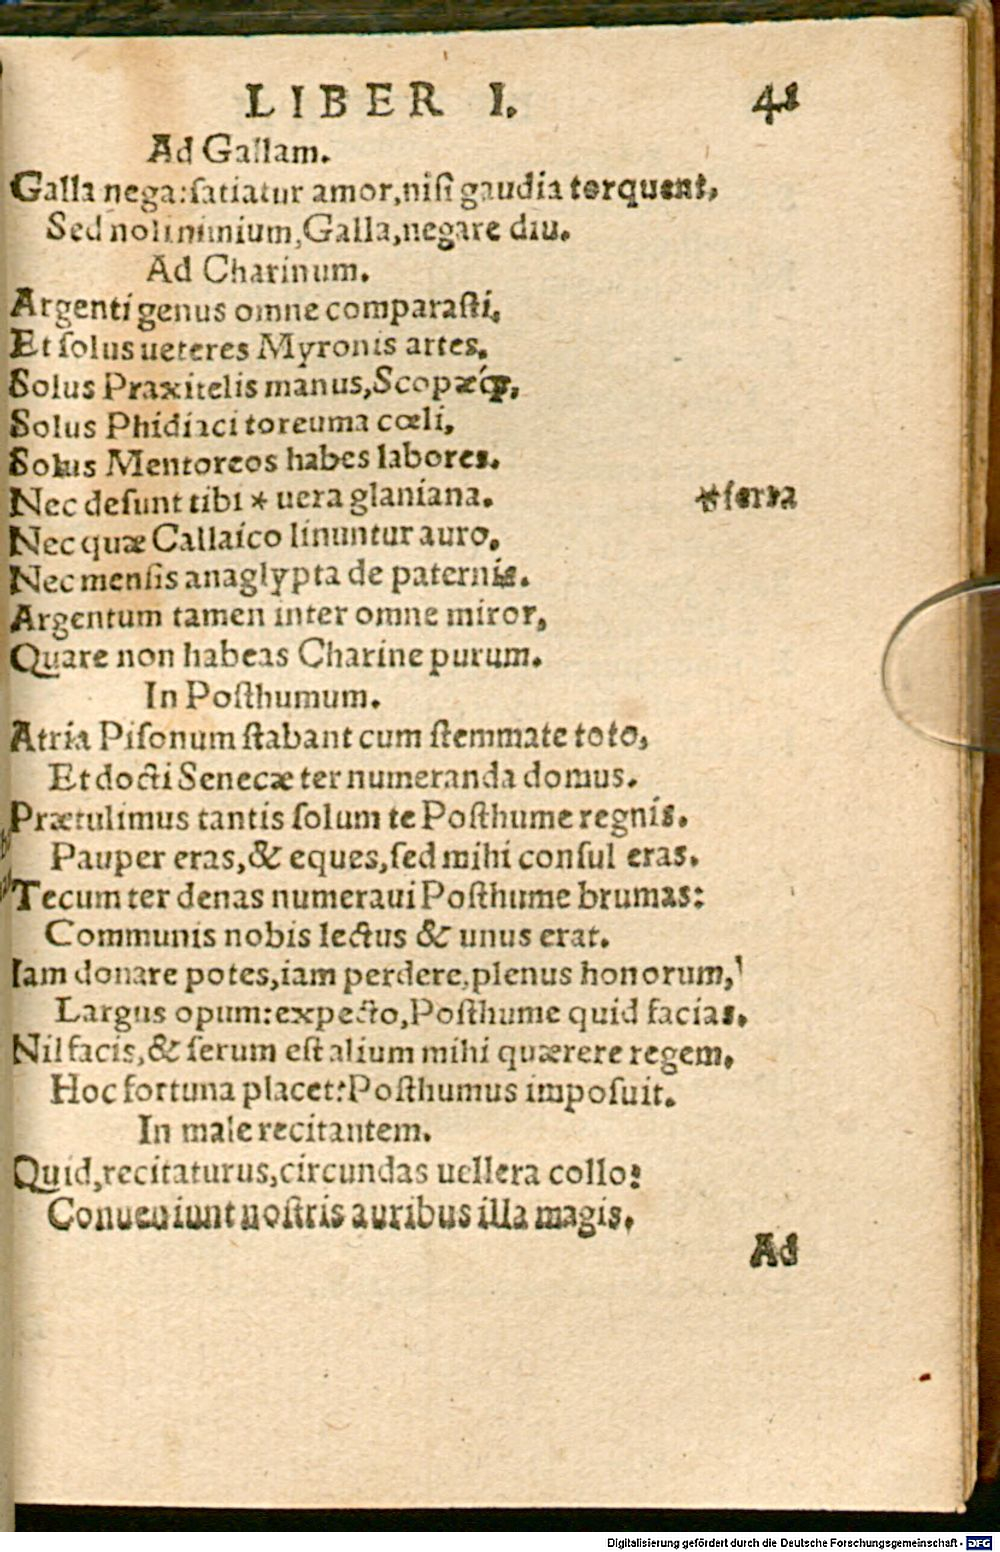 LIBER I. 41
Ad Gallam.
Galla nega: satiatur amor, nisi gaudia torquent,
Sed noli nimium, Galla, negare diu.
Ad Charinum.
Argenti genus omne comparasti,
Et solus ueteres Myronis artes,
Solus Praxitelis manus, Scopæq́;,
Solus Phidiaci toreuma cœli,
Solus Mentoreos habes labores.
Nec desunt tibi * uera glaniana. *ferra
Nec quæ Callaico linuntur auro,
Nec mensis anaglypta de paternis.
Argentum tamen inter omne miror,
Quare non habeas Charine purum.
In Posthumum.
Atria Pisonum stabant cum stemmate toto,
Et docti Senecæ ter numeranda domus.
Prætulimus tantis solum te Posthume regnis.
Pauper eras, & eques, sed mihi consul eras.
Tecum ter denas numeraui Posthume brumas:
Communis nobis lectus & unus erat.
Iam donare potes, iam perdere, plenus honorum,
Largus opum: expecto, Posthume quid facias.
Nil facis, & serum est alium mihi quærere regem,
Hoc fortuna placet: Posthumus imposuit.
In male recitantem.
Quid, recitaturus, circundas uellera collo?
Conueniunt nostris auribus illa magis.
Ad
Digitalisierung gefördert durch die Deutsche Forschungsgemeinschaft - DFG